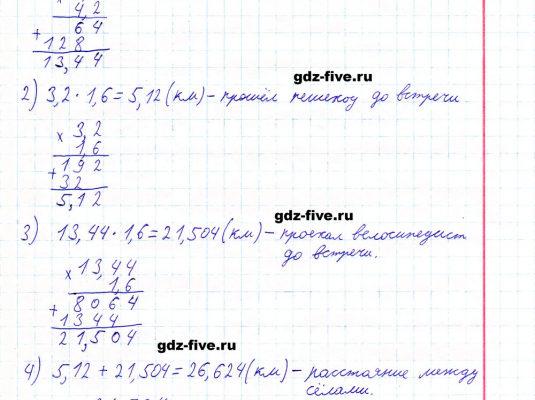 × 4,2
6 4
+ 1 2 8
1 3, 4 4
gdz-five.ru
2) 3,2 · 1,6 = 5,12 (км) – прошёл пешеход до встречи
× 3,2
1,6
1 9 2
+ 3 2
5, 1 2
gdz-five.ru
3) 13,44 · 1,6 = 21,504 (км) – проехал велосипедист
до встречи.
× 1 3, 4 4
1, 6
8 0 6 4
+ 1 3 4 4
2 1, 5 0 4
gdz-five.ru
4) 5,12 + 21,504 = 26,624 (км) – расстояние между
сёлами.